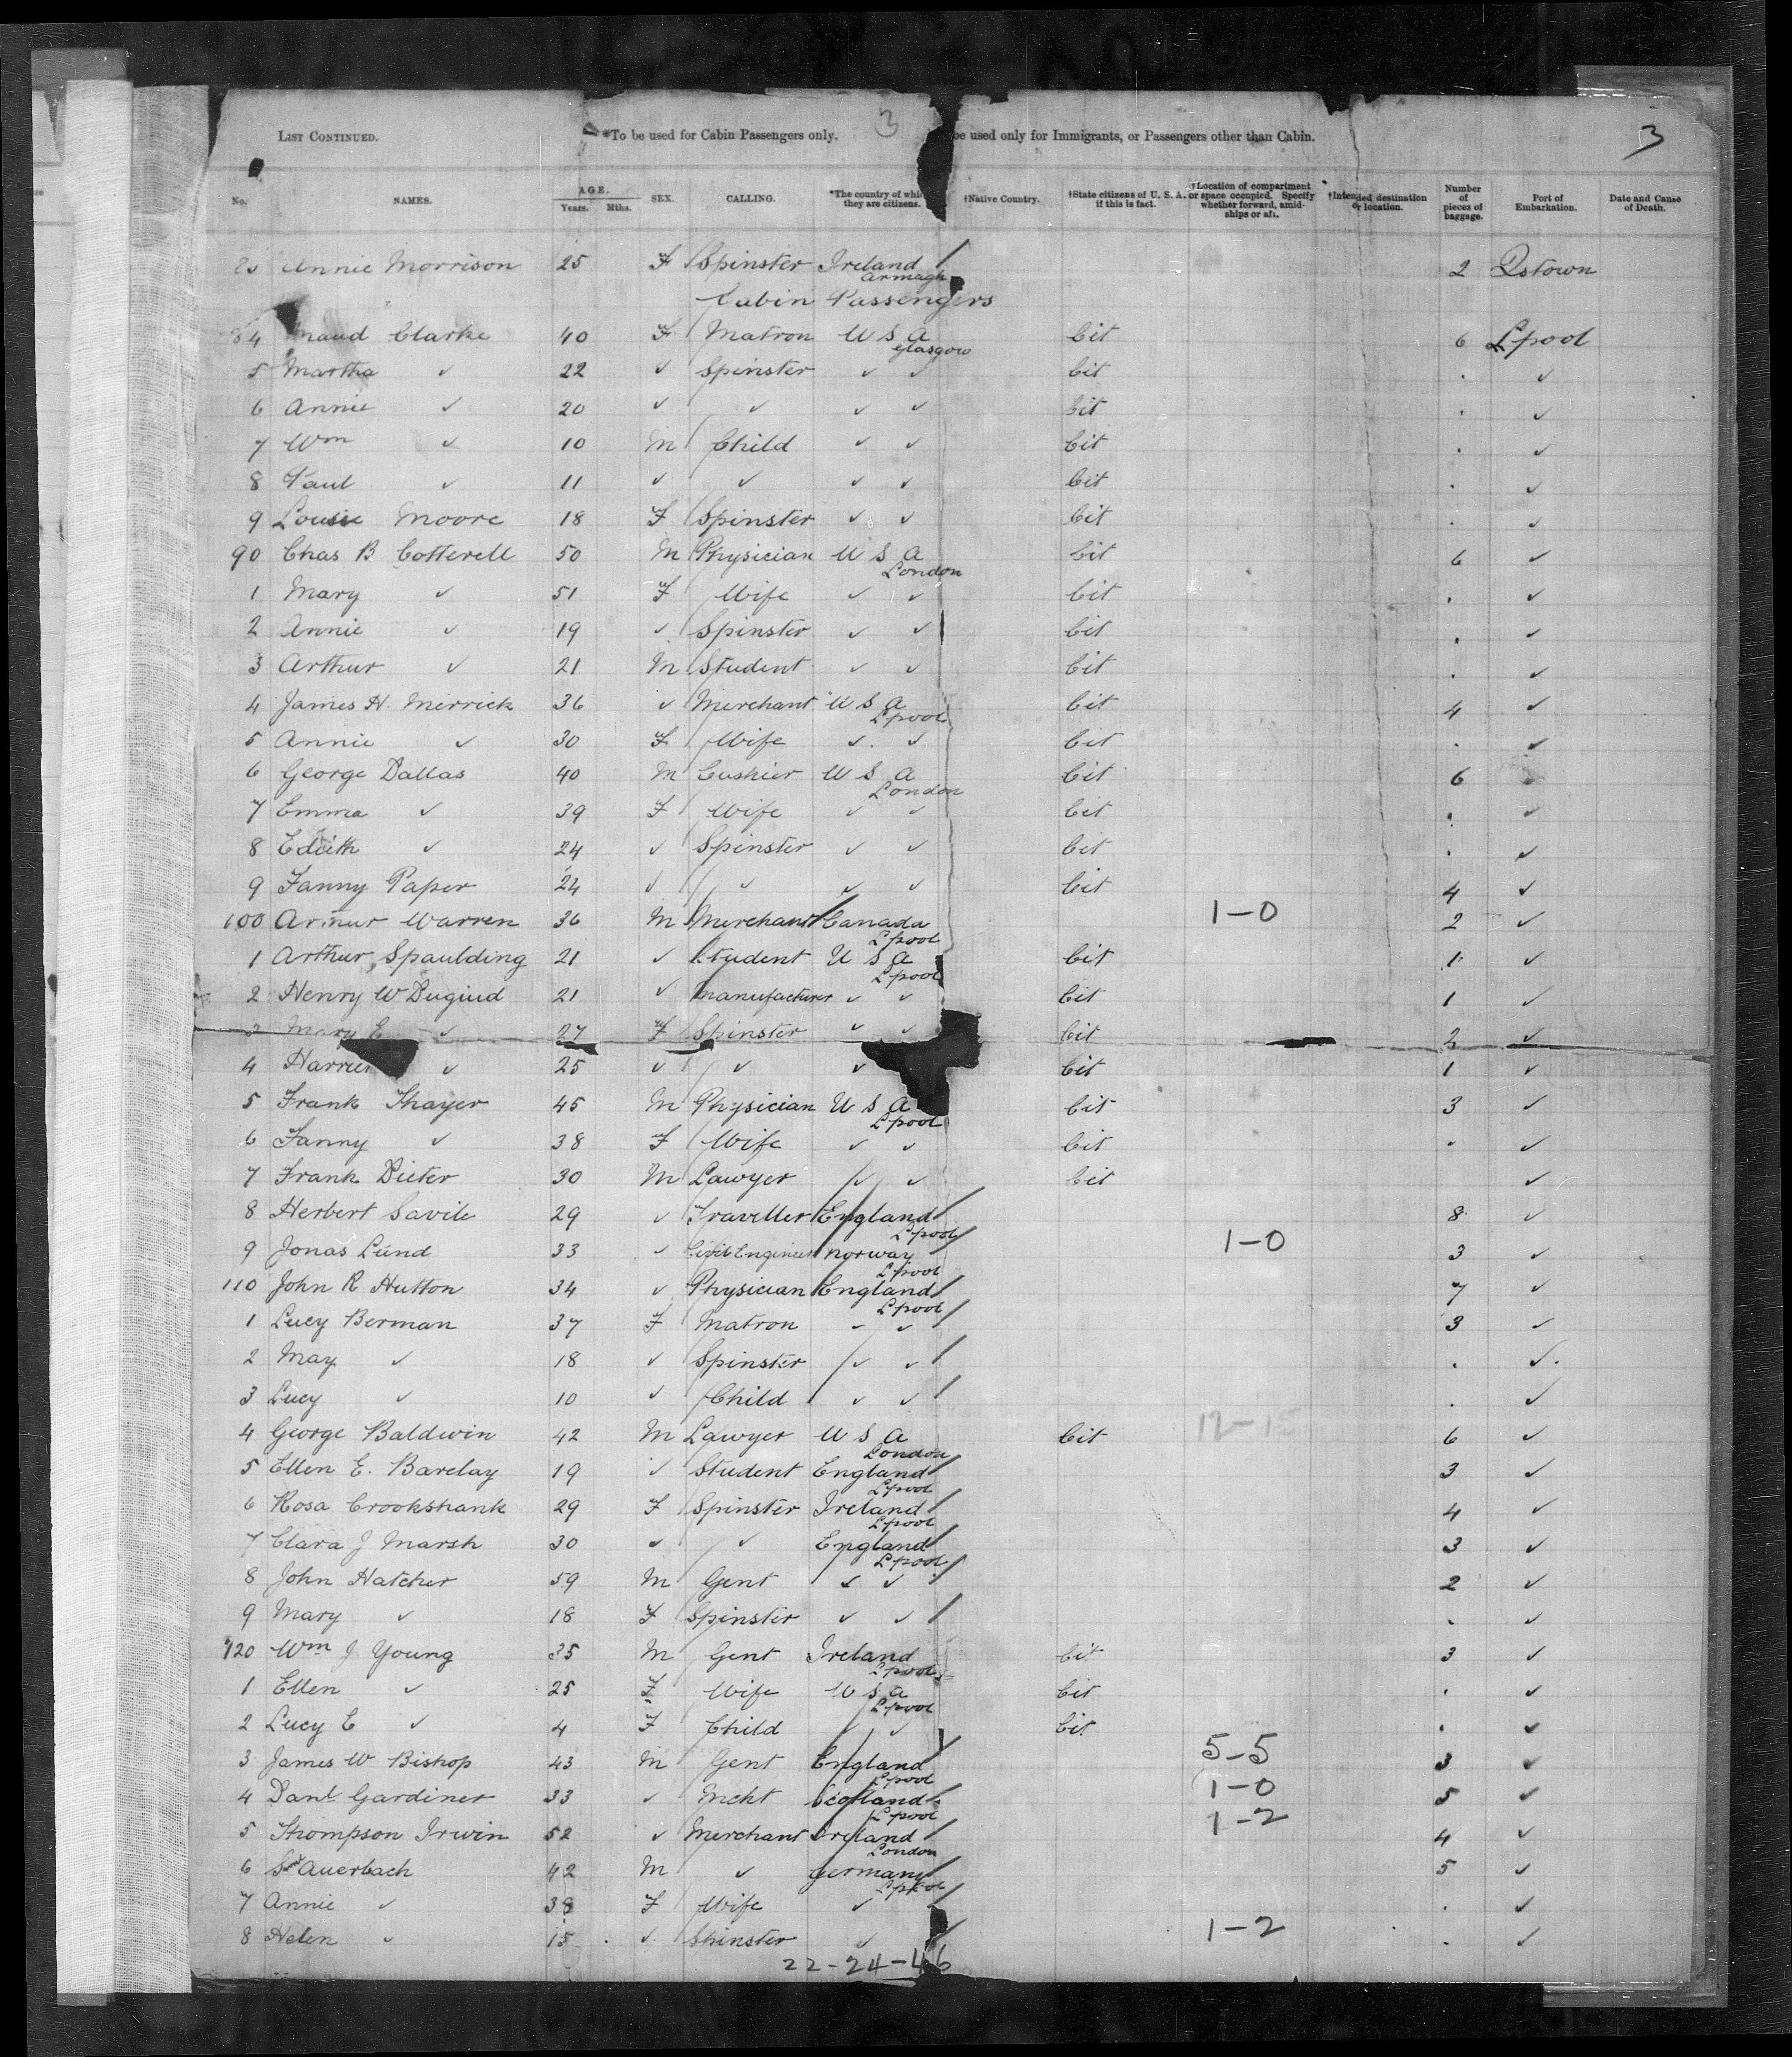 LIST CONTINUED. *To be used for Cabin Passengers only. 3 be used only for Immigrants, or Passengers other than Cabin. 3
No. NAMES. AGE. Years. Mths. SEX. CALLING. *The country of which they are citizens. †Native Country. †State citizens of U. S. A. if this is fact. †Location of compartment or space occupied. Specify whether forward, amidships or aft. †Intended destination or location. Number of pieces of baggage. Port of Embarkation. Date and Cause of Death.
Annie Morrison 25 F Spinster Ireland Armagh 2 Qstown
Cabin Passengers
84 Maud Clarke 40 F Matron U S A Glasgow Cit 6 Lpool
5 Martha ✓ 22 ✓ Spinster ✓ ✓ Cit . ✓
6 Annie ✓ 20 ✓ ✓ ✓ ✓ Cit . ✓
7 Wm ✓ 10 M Child ✓ ✓ Cit . ✓
8 Paul ✓ 11 ✓ ✓ ✓ ✓ Cit . ✓
9 Louise Moore 18 F Spinster ✓ ✓ Cit . ✓
90 Chas B Cotterell 50 M Physician U S A London Cit 6 ✓
1 Mary ✓ 51 F Wife ✓ ✓ Cit . ✓
2 Annie ✓ 19 ✓ Spinster ✓ ✓ Cit . ✓
3 Arthur ✓ 21 M Student ✓ ✓ Cit . ✓
4 James H. Merrick 36 ✓ Merchant U S A Lpool Cit 4 ✓
5 Annie ✓ 30 F Wife ✓ ✓ Cit . ✓
6 George Dallas 40 M Cashier U S A London Cit 6 ✓
7 Emma ✓ 39 F Wife ✓ ✓ Cit . ✓
8 Edith ✓ 24 ✓ Spinster ✓ ✓ Cit . ✓
9 Fanny Paper 24 ✓ ✓ ✓ ✓ Cit 4 ✓
100 Arthur Warren 36 M Merchant Canada Lpool 1-0 2 ✓
1 Arthur Spaulding 21 ✓ Student U S A Lpool Cit 1 ✓
2 Henry W Duguid 21 ✓ Manufacturer ✓ ✓ Cit 1 ✓
3 Mary E ✓ 27 F Spinster ✓ ✓ Cit 2 ✓
4 Harriet ✓ 25 ✓ ✓ ✓ Cit 1 ✓
5 Frank Thayer 45 M Physician U S A Lpool Cit 3 ✓
6 Fanny ✓ 38 F Wife ✓ ✓ Cit . ✓
7 Frank Dieter 30 M Lawyer ✓ ✓ Cit ✓
8 Herbert Savile 29 ✓ Traveller England Lpool 8 ✓
9 Jonas Lund 33 ✓ Civil Engineer Norway Lpool 1-0 3 ✓
110 John R Hutton 34 ✓ Physician England Lpool 7 ✓
1 Lucy Berman 37 F Matron ✓ ✓ 3 ✓
2 May ✓ 18 ✓ Spinster ✓ ✓ . ✓
3 Lucy ✓ 10 ✓ Child ✓ ✓ . ✓
4 George Baldwin 42 M Lawyer U S A London Cit 12-15 6 ✓
5 Ellen E. Barclay 19 ✓ Student England Lpool 3 ✓
6 Rosa Crookshank 29 F Spinster Ireland Lpool 4 ✓
7 Clara J Marsh 30 ✓ ✓ England Lpool 3 ✓
8 John Hatcher 59 M Gent ✓ ✓ 2 ✓
9 Mary ✓ 18 F Spinster ✓ ✓ . ✓
120 Wm J Young 35 M Gent Ireland Lpool Cit 3 ✓
1 Ellen ✓ 25 F Wife U S A Lpool Cit . ✓
2 Lucy E ✓ 4 F Child ✓ ✓ Cit . ✓
3 James W Bishop 43 M Gent England Lpool 5-5 3 ✓
4 Danl Gardiner 33 ✓ Mcht Scotland Lpool 1-0 5 ✓
5 Thompson Irwin 52 ✓ Merchant Ireland London 1-2 4 ✓
6 Auerbach 42 M ✓ Germany Lpool 5 ✓
7 Annie ✓ 38 F Wife ✓ . ✓
8 Helen ✓ 15 ✓ Spinster ✓ 1-2 . ✓
22-24-46